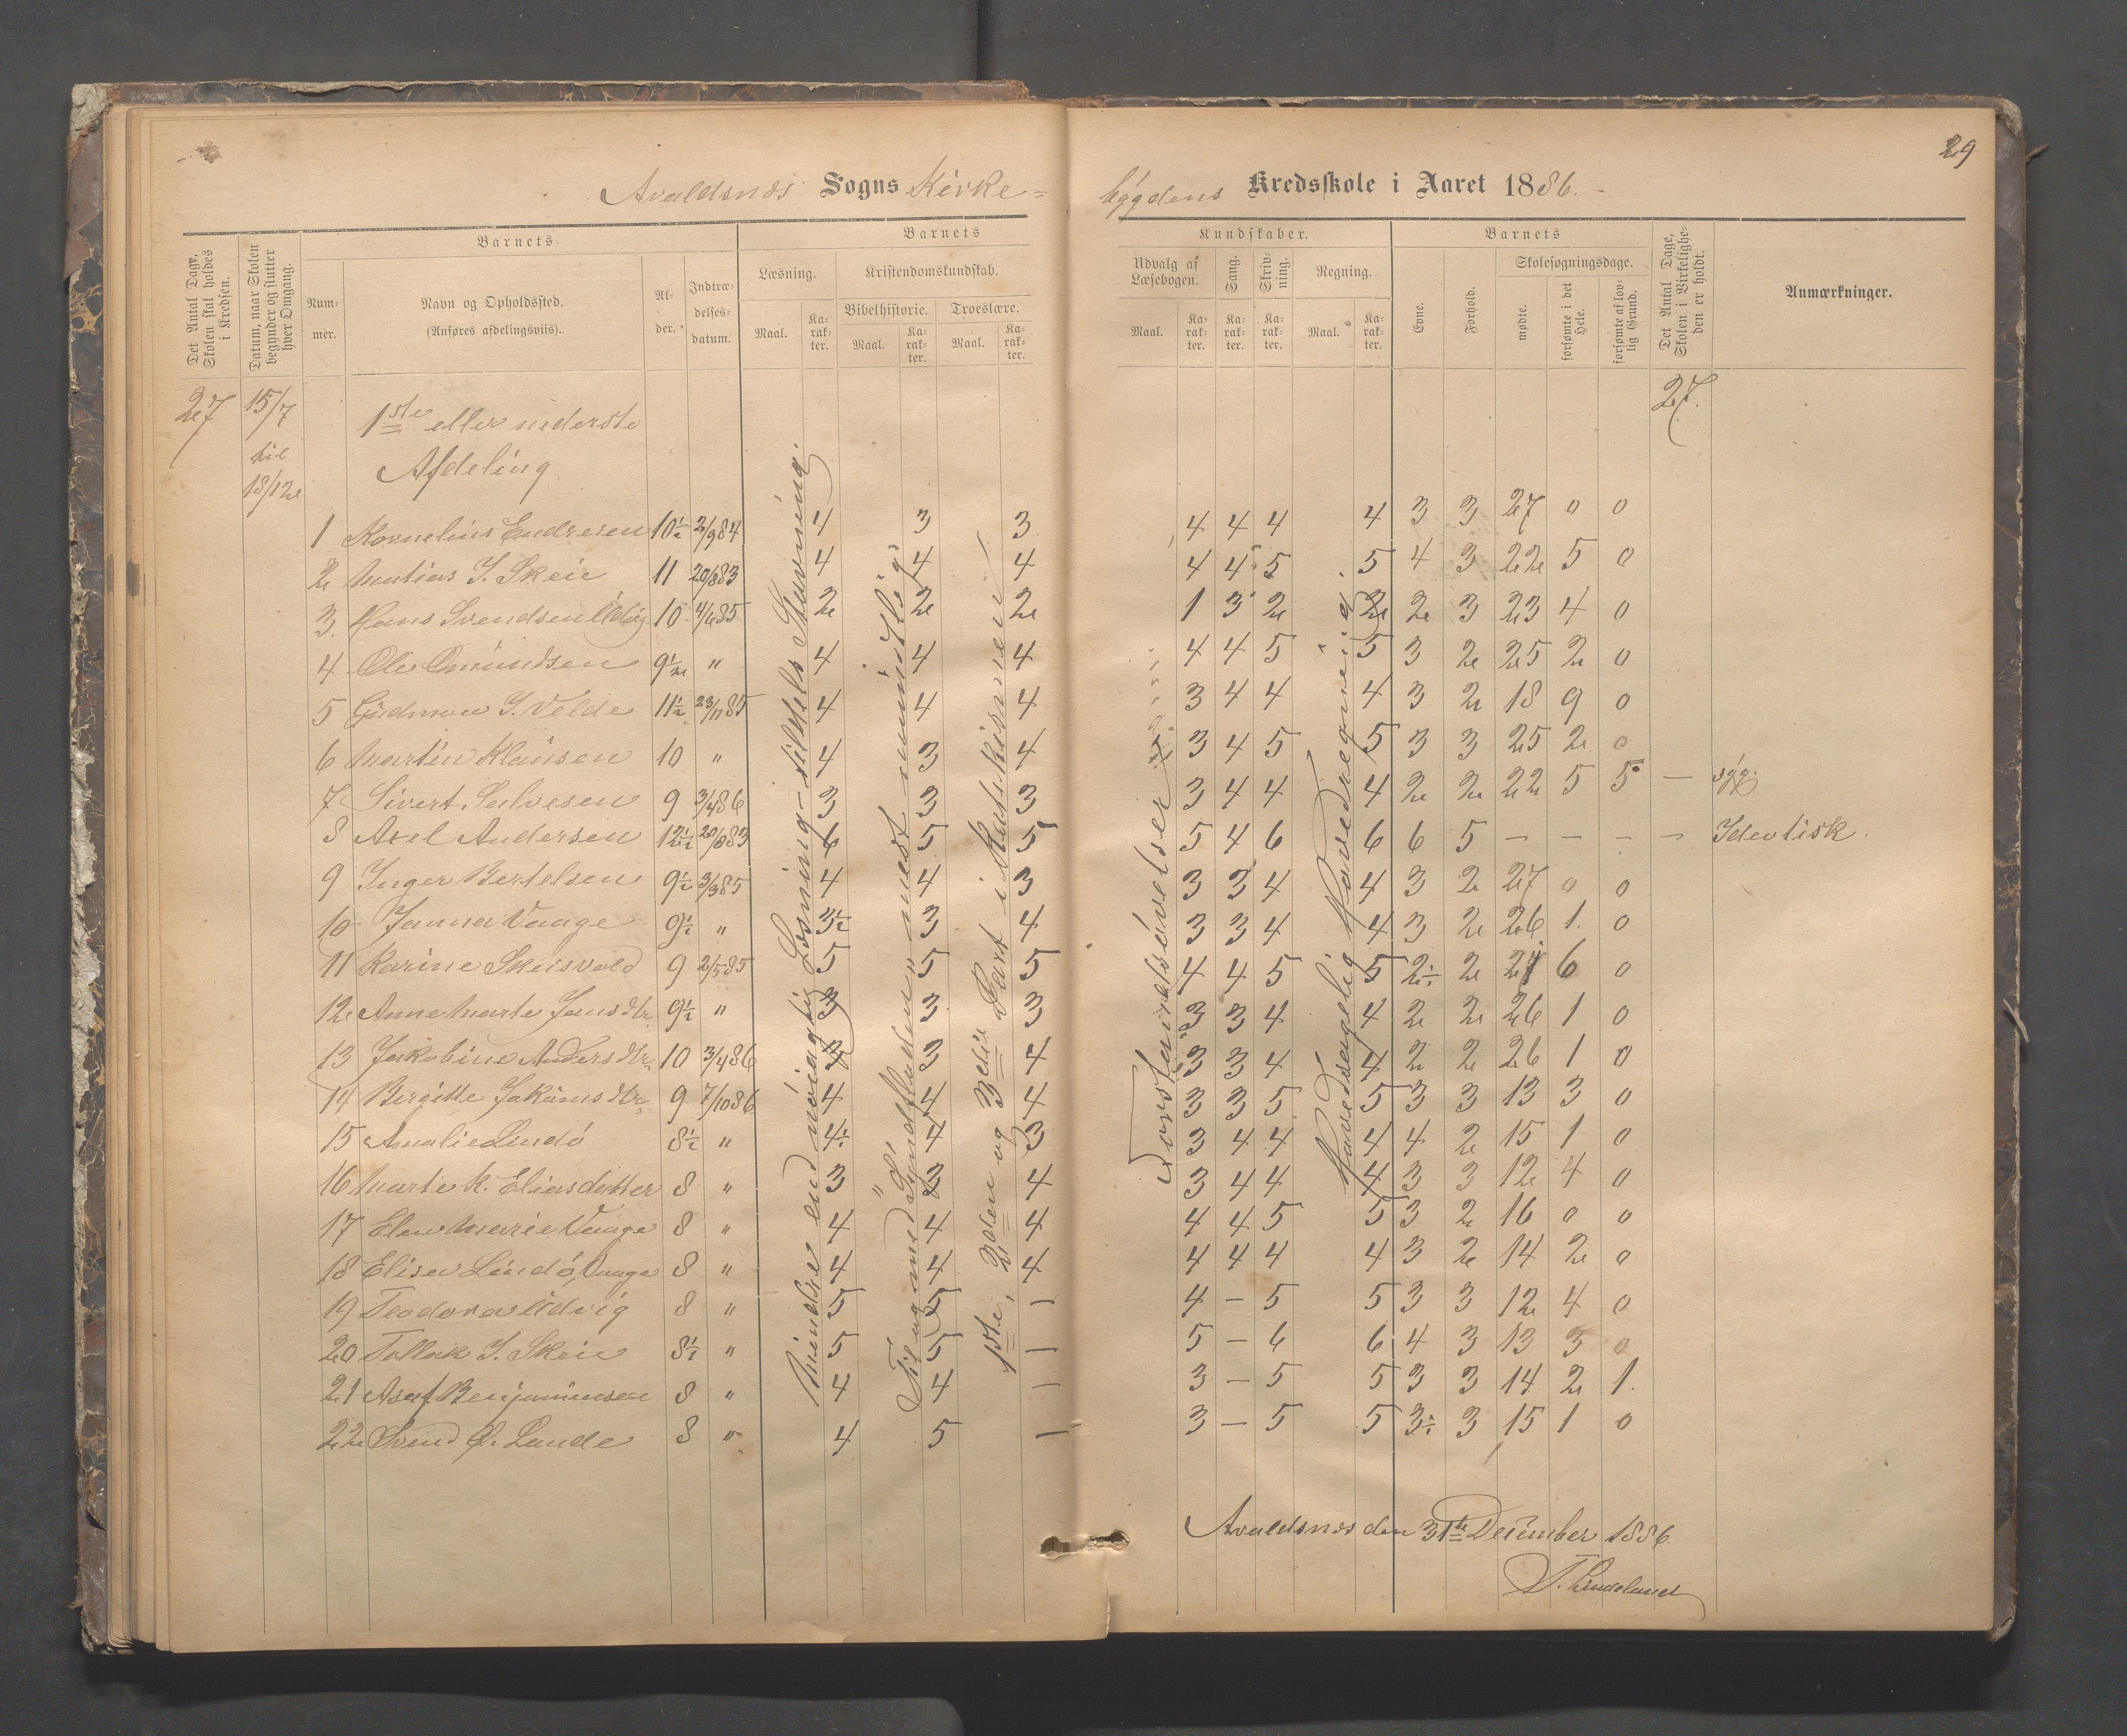 29
Avaldsnæs Sogns Kirke=
bygdens Kredsskole i Aaret 1886.
Det Antal Dage, Skolen skal holdes i Kredsen.
Datum, naar Skolen begynder og slutter hver Omgang.
Barnets
Nummer.
Navn og Opholdssted.
(Anføres afdelingsviis).
Alder.
Indtrædelsesdatum.
Barnets
Læsning.
Kristendomskundskab.
Bibelhistorie.
Troeslære.
Maal.
Karakter.
Maal.
Karakter.
Maal.
Karakter.
Kundskaber.
Udvalg af Læsebogen.
Sang.
Skrivning.
Regning.
Maal.
Karakter.
Karakter.
Karakter.
Maal.
Karakter.
Barnets
Evne.
Forhold.
Skolesøgningsdage.
mødte.
forsømte i det Hele.
forsømte af lovlig Grund.
Det Antal Dage, Skolen i Virkeligheden er holdt.
Anmærkninger.
27 15/7 til 18/12
1ste eller nederste
Afdeling
27.
1 Kornelius Endresen 10½ 2/9 84 4 3 3 4 4 4 4 3 3 27 0 0
2 Matias J. Skeie 11 20/8 83 4 4 4 4 4 5 5 4 3 22 5 0
3. Hans Svendsen Udvig 10 4/6 85 2 2 2 1 3 2 2 2 3 23 4 0
4 Ole Omundsen 9½ " 4 4 4 4 4 5 5 3 2 25 2 0
5 Gudmon S. Velde 11½ 23/11 85 4 4 4 3 4 4 4 3 2 18 9 0
6 Martin Klausen 10 " 4 3 4 3 4 5 5 3 3 25 2 0
7 Sivert Salvesen 9 3/4 86 3 3 3 3 4 4 4 2 2 22 5 5 — syg.
8 Axel Andersen 12½ 20/8 83 6 5 5 5 4 6 6 6 5 — — — — Idiotisk.
9 Inger Bertelsen 9½ 3/3 85 4 4 3 3 3 4 4 3 2 27 0 0
10 Janna Vaage 9½ " 3½ 3 4 3 3 4 4 3 2 26 1. 0
11 Karine Skeisvold 9 2/5 85 5 5 5 4 4 5 5 2½ 2 21 6 0
12 Anne Marte Jansdtr. 9½ " 3 3 3 3 3 4 4 2 2 26 1 0
13 Jakobine Andersdtr. 10 3/4 86 3 4 3 3 4 4 2 2 26 1 0
14 Bergitte Jakimsdtr. 9 7/10 86 4 4 4 3 3 5 5 3 3 13 3 0
15 Amalie Lindö 8½ " 4½ 4 3 3 4 4 4 4 2 15 1 0
16 Marte K. Eliasdatter 8 " 3 3 4 3 4 4 4 3 3 12 4 0
17 Elen Marie Vaage 8 " 4 4 4 4 4 5 5 3 2 16 0 0
18 Elise Lindö, Vaage 8 " 4 4 4 4 4 4 4 3 2 14 2 0
19 Teodora Udvig 8 " 5 5 — 4 — 5 5 3 3 12 4 0
20 Tollak J. Skeie 8½ " 5 5 — 5 — 6 6 4 3 13 3 0
21 Asaf Benjaminsen 8 " 4 4 — 3 — 5 5 3 3 14 2 1.
22 Svend Lande 8 " 4 5 — 3 — 5 5 3½ 3 15 1 0
Mindre end nöiagtig Læsning – tildels Stavning.
Til og med "Syndfloden", mest mundtlig
1ste, 2den og 3die Part i Katekismen
Forstandsövelser
Hovedsagelig Hovedregning.
Avaldsnæs den 31te December 1886.
T. Lindeland